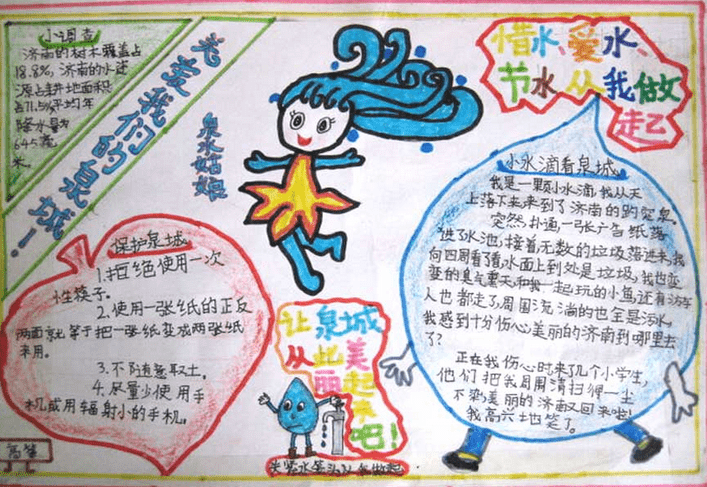 小调查
济南的树木覆盖占
18.8%,济南的水资
源占耕地面积
占71.5%平均年
降水量为
645毫
米。
关爱我们的泉城!
泉水姑娘
惜水、爱水、
节水从我做
起
保护泉城
1.拒绝使用一次
性筷子。
2.使用一张纸的正反
两面就等于把一张纸变成两张纸
来用。
3.不随意取土。
4.尽量少使用手
机或用辐射小的手机。
让泉城
从此美
丽起
来吧!
小水滴看泉城
我是一颗小水滴,我从天
上落下来来到了济南的趵突泉。
突然,扑通,一张广告纸落
进了水池,接着无数的垃圾落进来,我
向四周看了看水面上到处是垃圾,我也变
变的臭气熏天,和我一起玩的小鱼还有游车
人也都走了,周围流淌的也全是污水。
我感到十分伤心美丽的济南到哪里去
了?
正在我伤心时来了几个小学生,
他们把我周围清扫得一尘
不染,美丽的济南又回来啦!
我高兴地笑了。